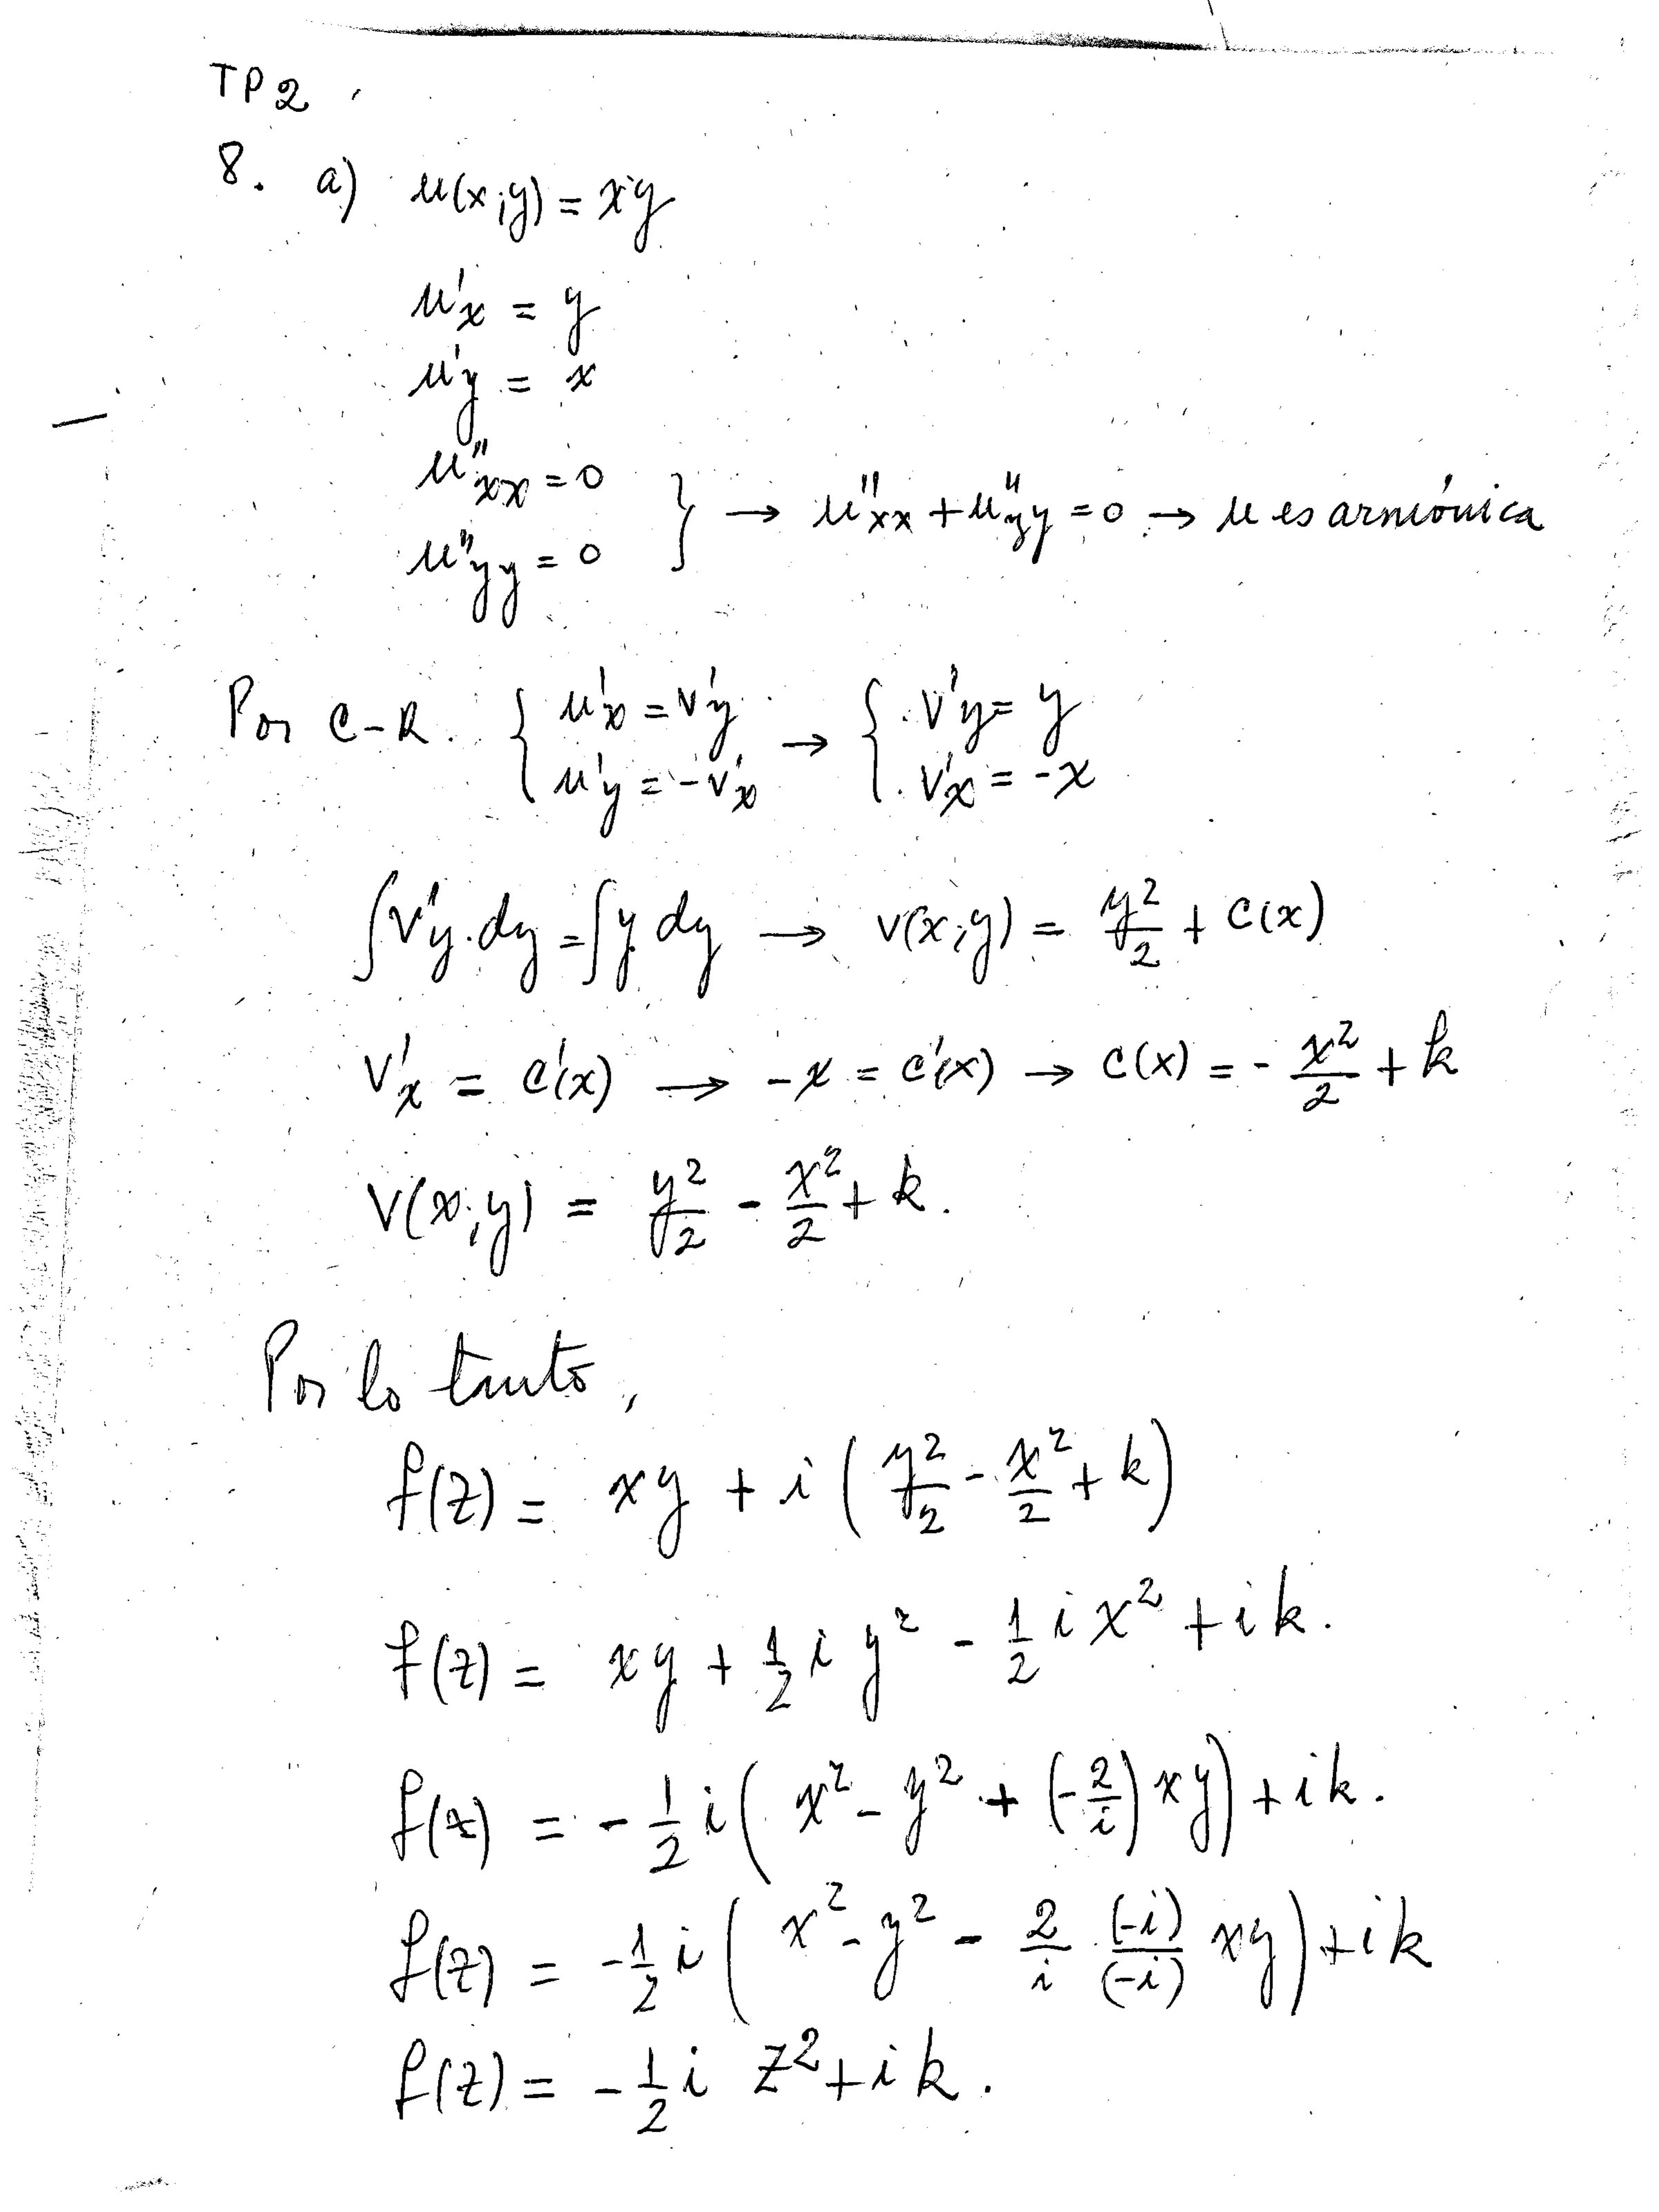 TP2
8. a) u(x;y) = xy
u'x = y
u'y = x
u''xx = 0
u''yy = 0 } → u''xx + u''yy = 0 → u es armónica
Por C-R. { u'x = v'y → { v'y = y
u'y = -v'x v'x = -x
∫v'y.dy = ∫y dy → v(x;y) = y²/2 + C(x)
v'x = C'(x) → -x = C'(x) → C(x) = -x²/2 + k
v(x;y) = y²/2 - x²/2 + k.
Por lo tanto,
f(z) = xy + i(y²/2 - x²/2 + k)
f(z) = xy + 1/2 i y² - 1/2 i x² + ik.
f(z) = -1/2 i(x² - y² + (-2/i)xy) + ik.
f(z) = -1/2 i(x² - y² - 2/i (-i)/(-i) xy) + ik
f(z) = -1/2 i z² + ik.